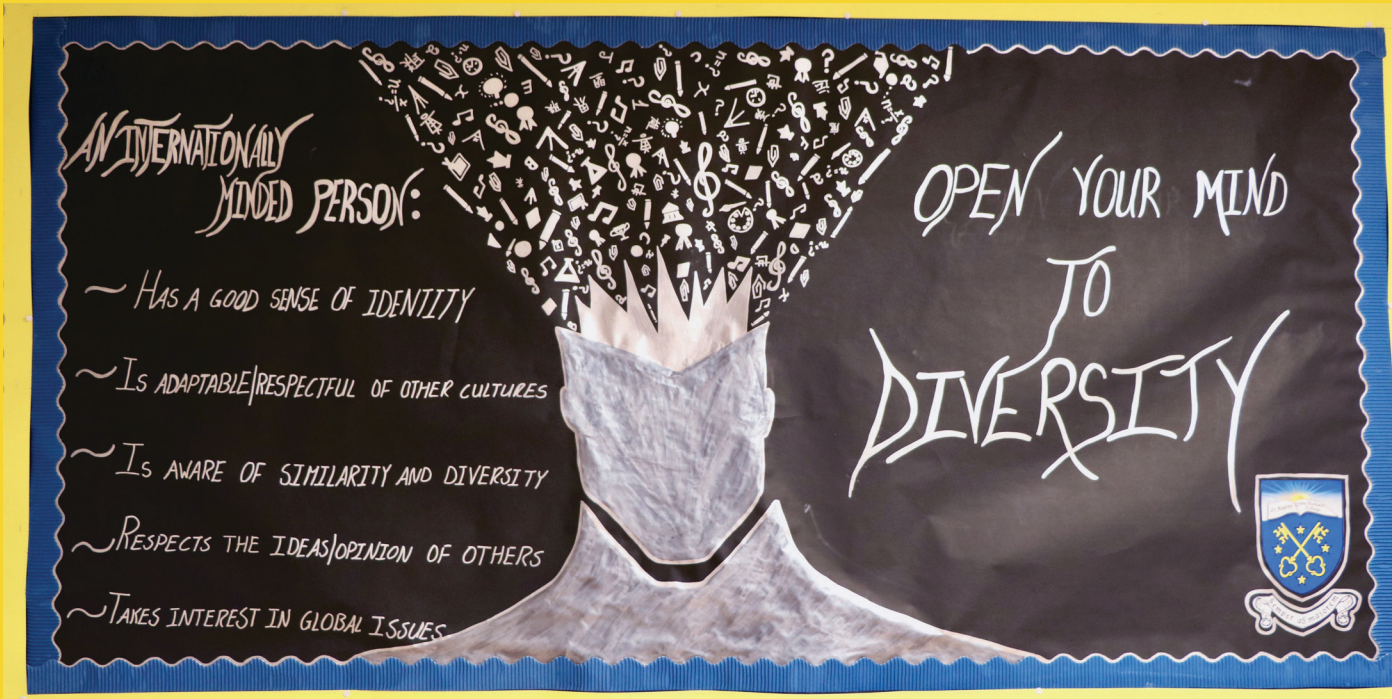 AN INTERNATIONALLY
MINDED PERSON:
~ HAS A GOOD SENSE OF IDENTITY
~ IS ADAPTABLE/RESPECTFUL OF OTHER CULTURES
~ IS AWARE OF SIMILARITY AND DIVERSITY
~ RESPECTS THE IDEAS/OPINION OF OTHERS
~ TAKES INTEREST IN GLOBAL ISSUES
OPEN YOUR MIND
TO
DIVERSITY